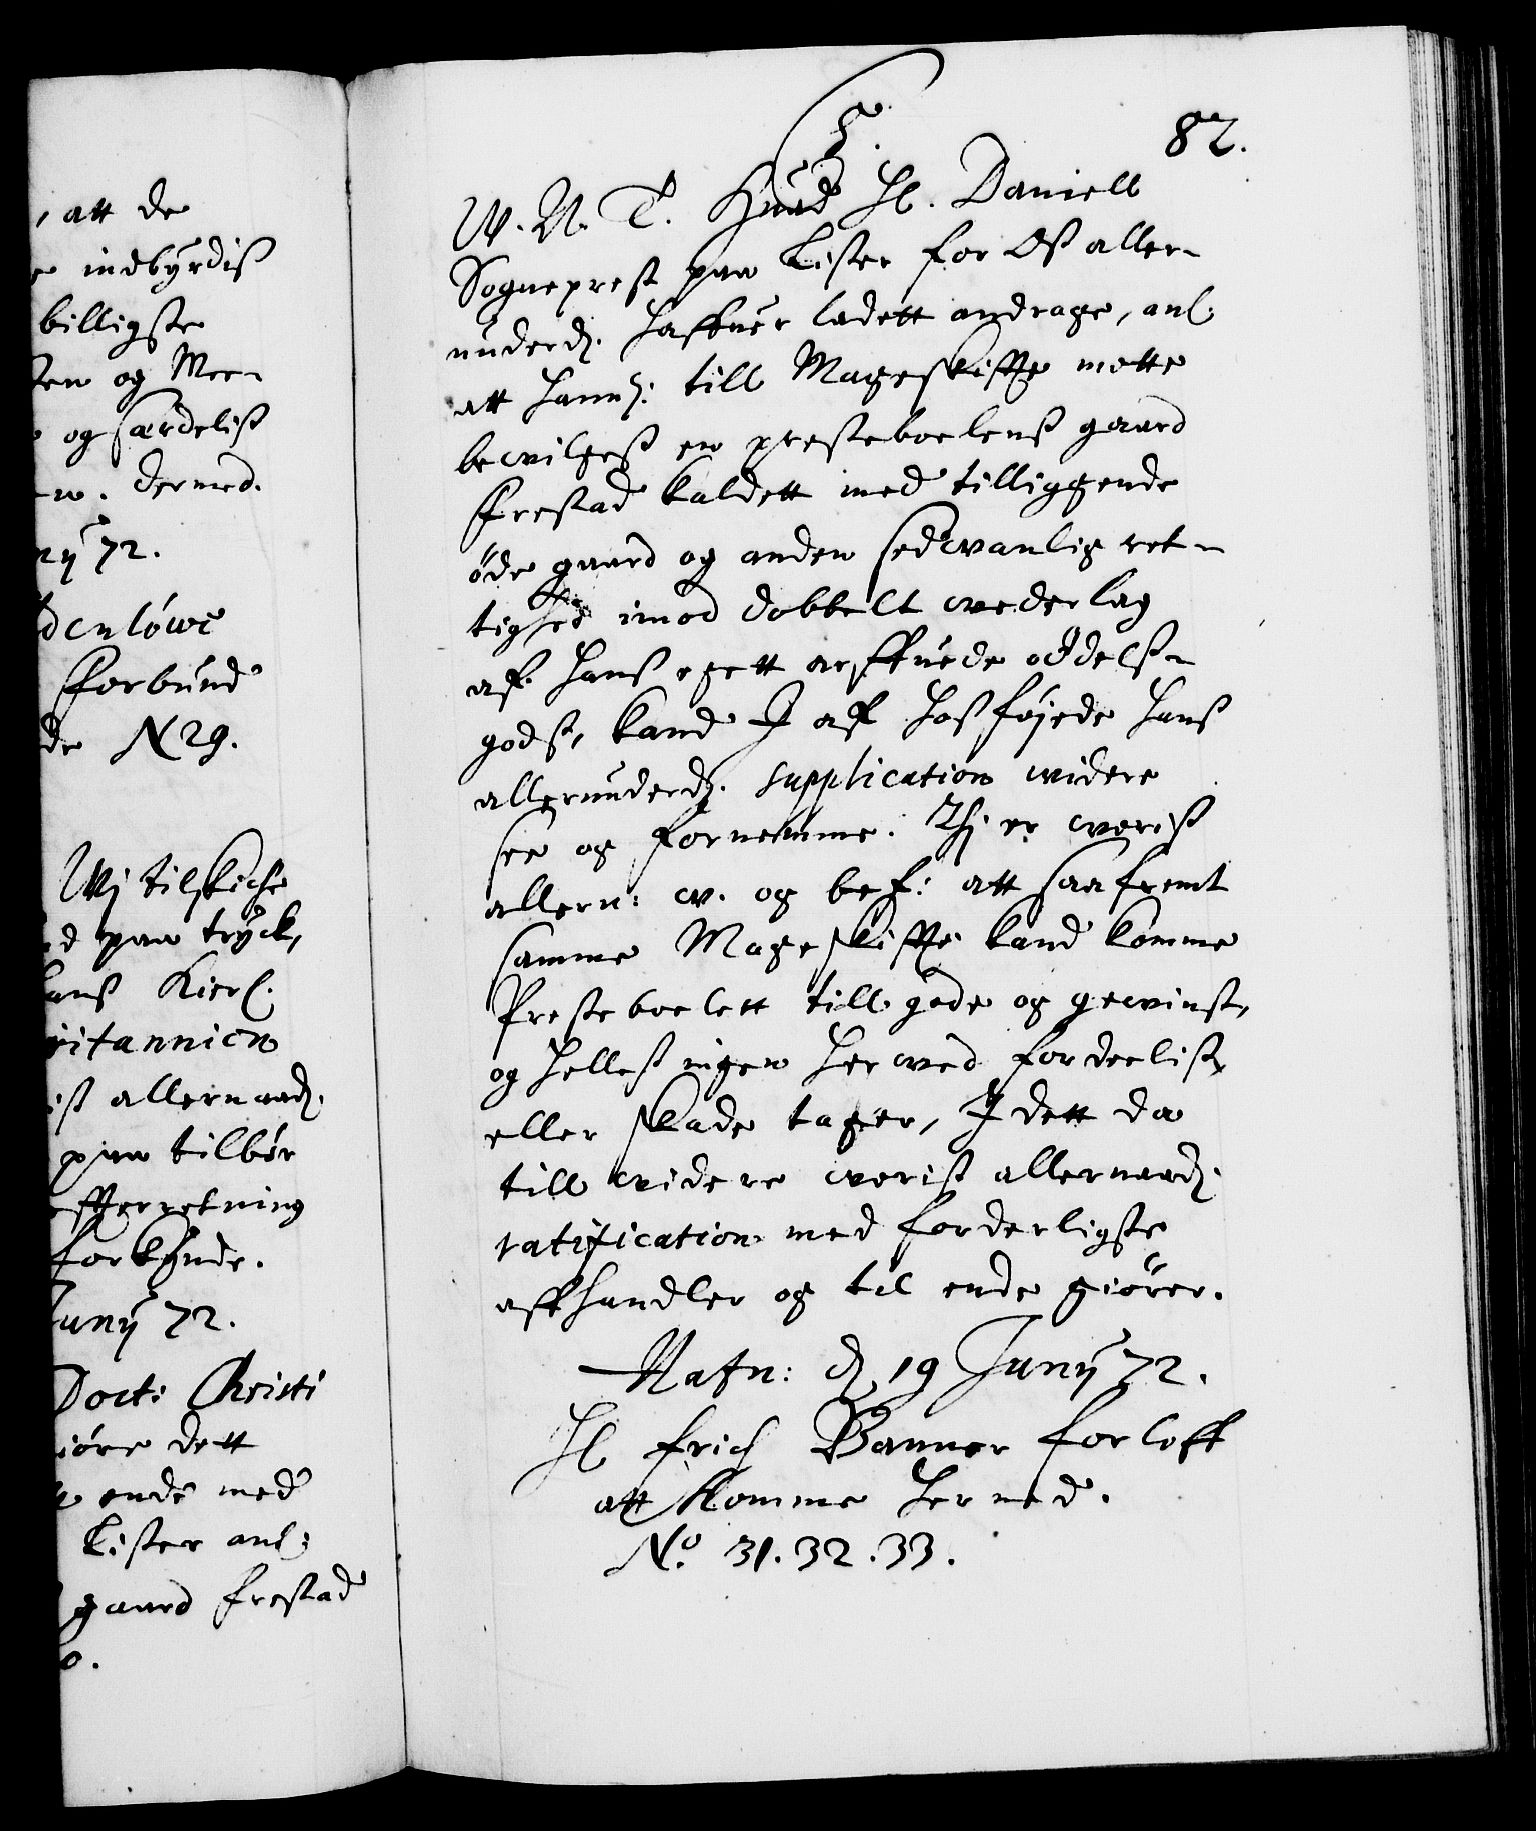 , att de
e indbyrdiß
billigste
sten og Mee-
og særdeliß
dermed.
nÿ 72.
denlöwe
forbund
de N 29.
Wj tilskiche
ed paa tryck,
hanß Kierl.
ritannien
ist allernaad.
paa tilbör
effterretning
forkynde.
Junÿ 72.
Doct: Christi
giöre dett
ende med
Lister anl:
gaard Frestad
82.
W. U. T. Hl. Daniell
Sogneprest paa Lister for Oß aller-
underd. haffuer ladett andrage, anl.
att hannem till Mageskiffte motte
bewilgeß en presteboelenß gaard
Frestad kaldett med tilliggende
öde gaard og anden sedwanlig ret-
tighed imod dobbelt wederlag
aff hanß egett arffuede oddelß-
godß, kand I aff hoßföjede hanß
allerunderd. supplication widere
see og fornemme. Thj er woriß
allern: w. og bef: att saafremt
samme Mageskiffte kand komme
Presteboelett till gode og gewinst,
og helleß ingen herwed fordeeliß,
eller skade tager, I dett da
till widere woriß allernaad.
ratification med forderligste
affhandler og til ende giörer.
Hafn: d. 19 Junÿ 72.
Hl Frich Banner forloff
att komme her ned.
No. 31. 32. 33.